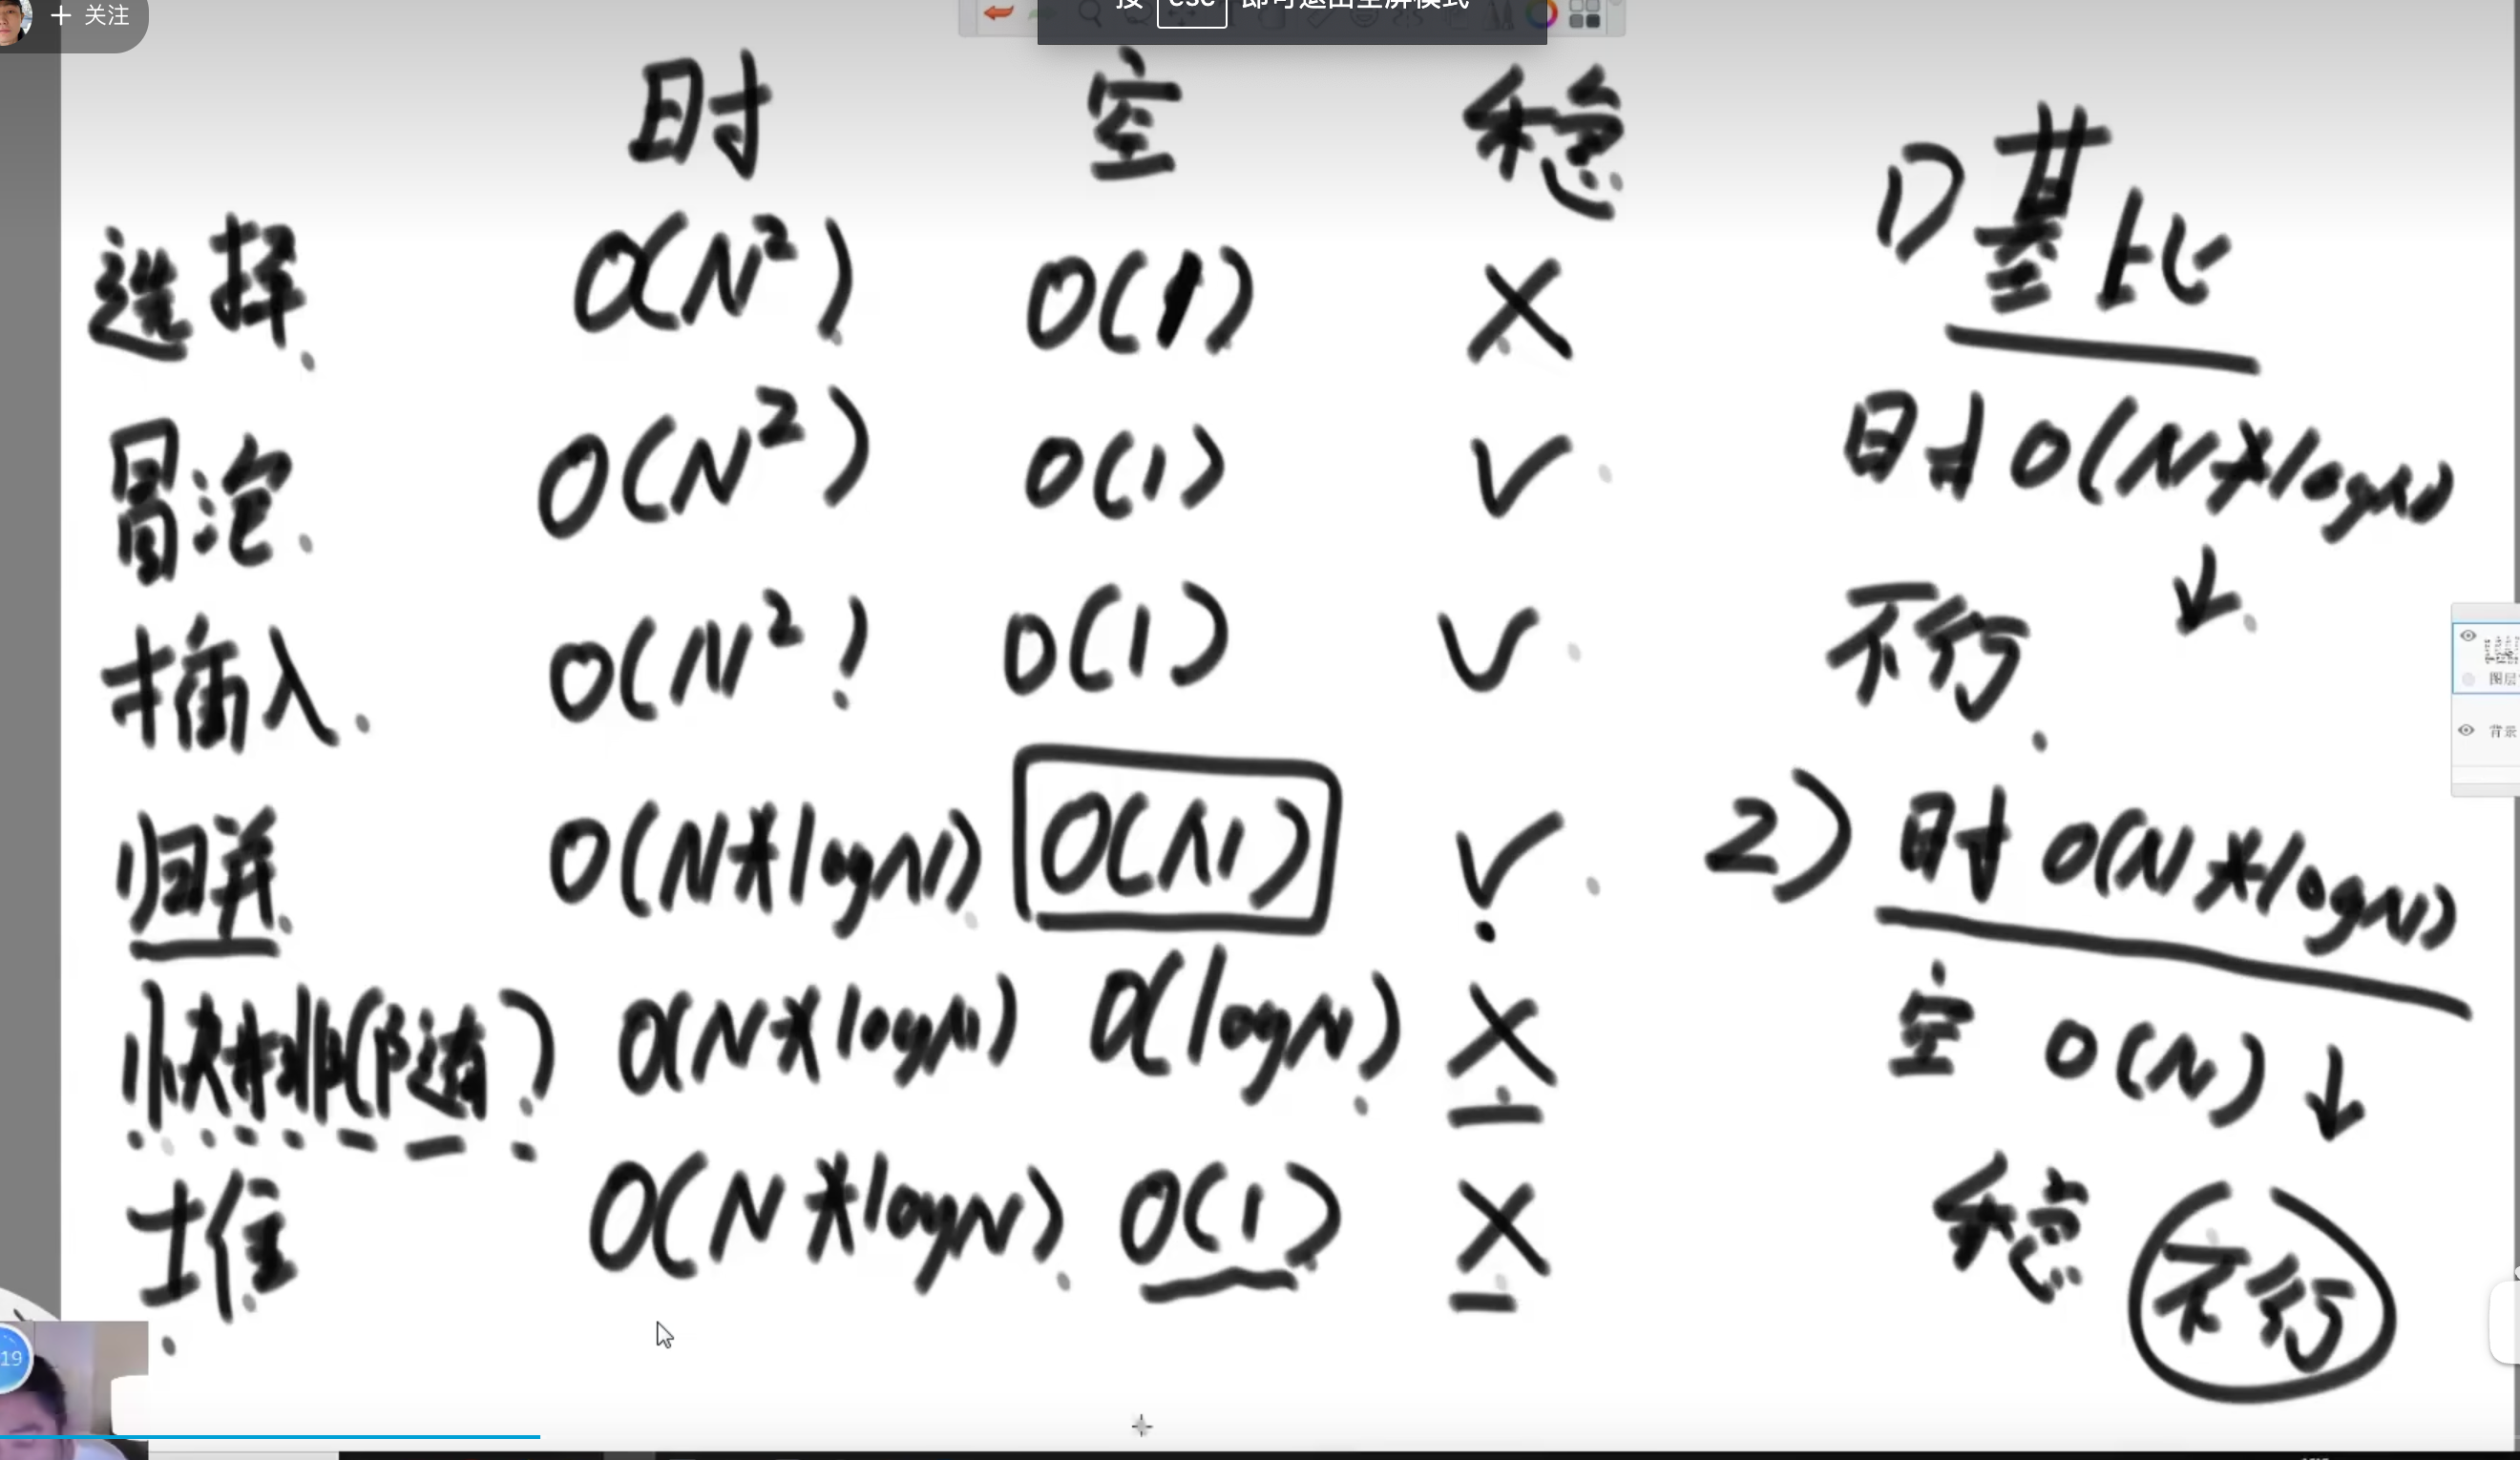 + 关注
按 esc 即可退出全屏模式
时 空 稳
选择. O(N²) O(1) X
冒泡. O(N²) O(1) √
插入. O(N²) O(1) √
归并. O(N*logN) O(N) √
快排(随) O(N*logN) O(logN) X
堆 O(N*logN) O(1) X
1) 基比
时 O(N*logN) ↓
不行.
2) 时 O(N*logN)
空 O(N) ↓
稳 不行
图层
背景
19